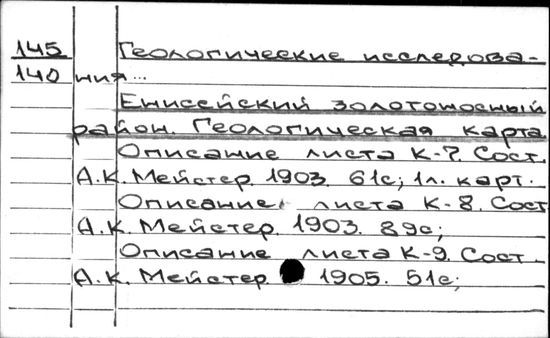 145 Геологические исследова-
140 ния...
Енисейский золотоносный
район. Геологическая карта
Описание листа К-7. Сост.
А.К. Мейстер. 1903. 61с; 1л. карт.
Описание листа К-8. Сост
А.К. Мейстер. 1903. 89с;
Описание листа К-9. Сост.
А.К. Мейстер 1905. 51с;